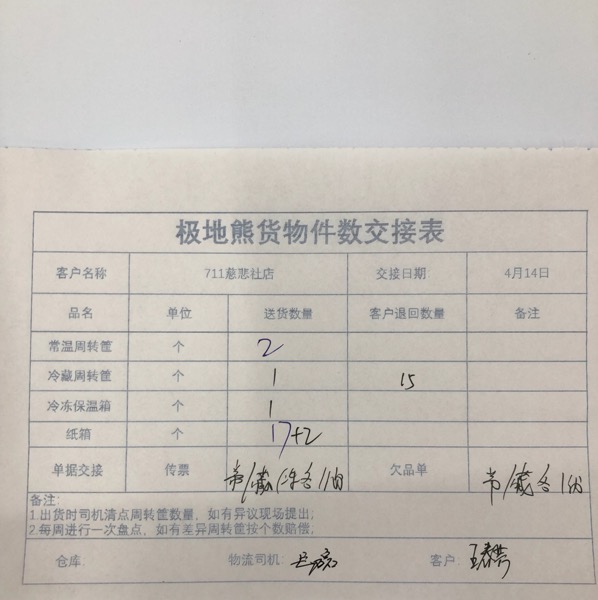 极地熊货物件数交接表
客户名称 711慈悲社店 交接日期 4月14日
品名 单位 送货数量 客户退回数量 备注
常温周转筐 个 2
冷藏周转筐 个 1 15
冷冻保温箱 个 1
纸箱 个 17+2
单据交接 传票 常/藏/冻各1份 欠品单 常/藏各1份
备注:
1.出货时司机清点周转筐数量，如有异议现场提出;
2.每周进行一次盘点，如有差异周转筐按个数赔偿;
仓库: 物流司机: 客户: